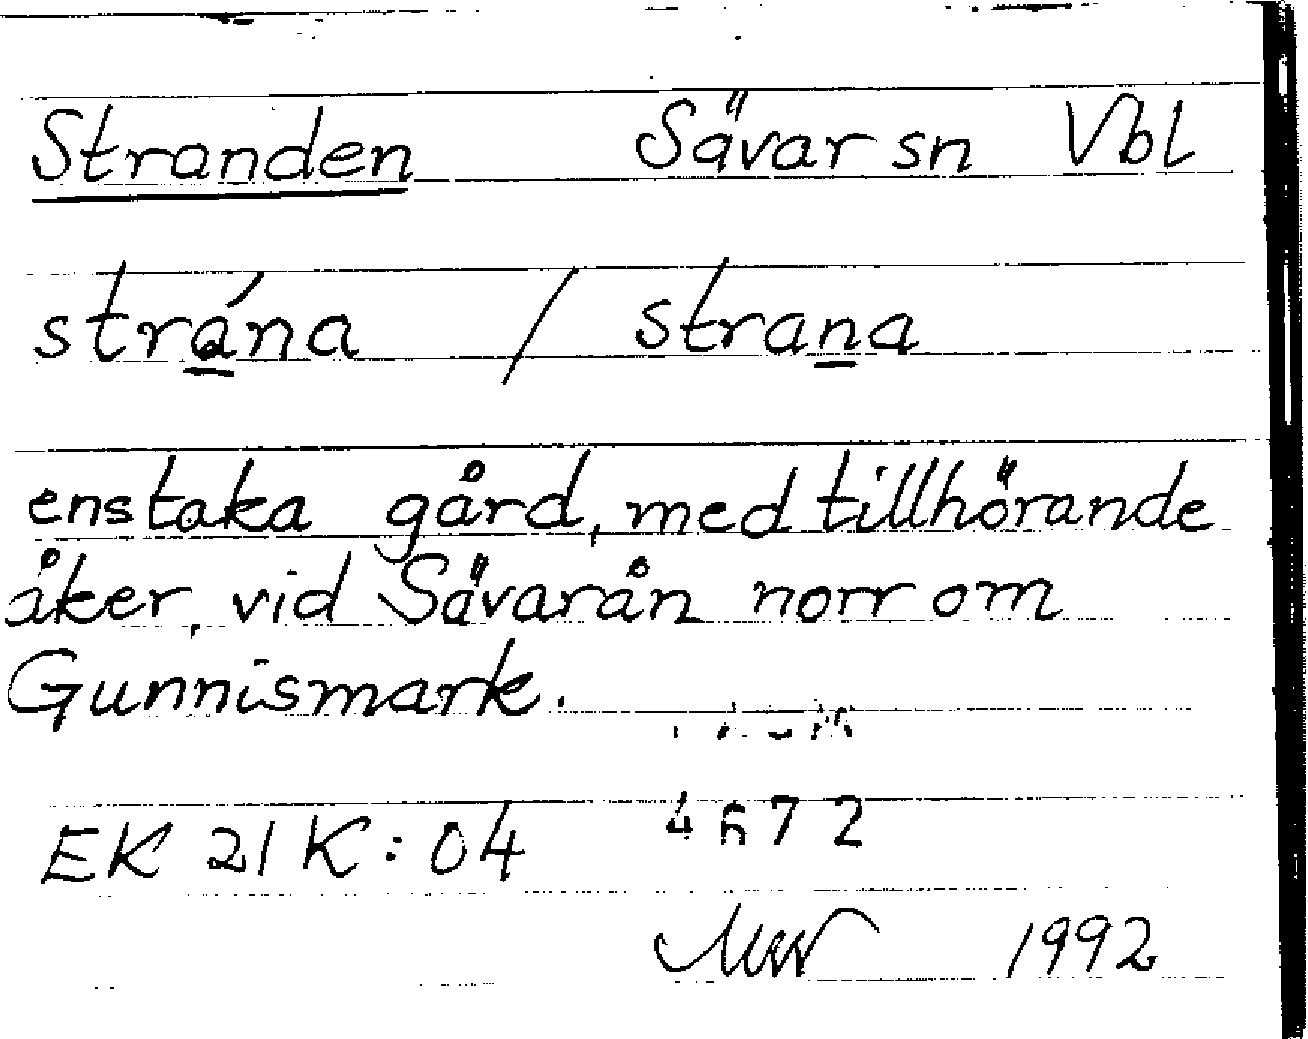 Stranden Sävar sn Vbl
strána / strana
enstaka gård, med tillhörande
åker, vid Sävarån norr om
Gunnismark.
EK 21 K : 04 4672
1992